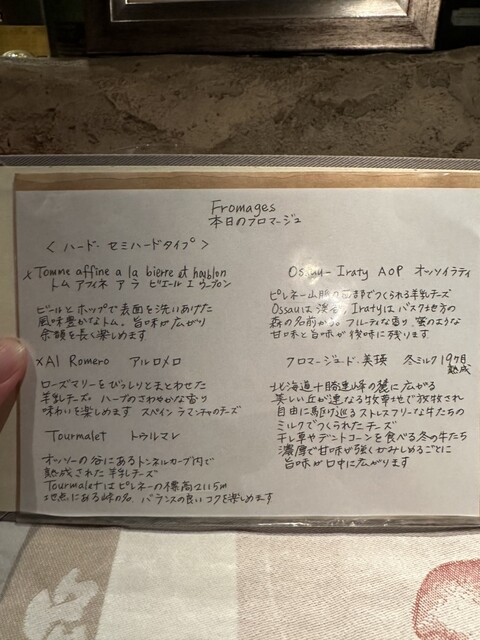 Fromages
本日のフロマージュ
< ハード・セミハードタイプ >
x Tomme affine a la bierre et houblon
トム アフィネ ア ラ ビエール エ ウーブロン
ビールとホップで表面を洗いあげた
風味豊かなトム。旨味が広がり
余韻を長く楽しめます
x Al Romero アルロメロ
ローズマリーをびっしりとまとわせた
羊乳チーズ。ハーブのさわやかな香り
味わいを楽しめます スペイン ラマンチャのチーズ
Tourmalet トゥルマレ
オッソーの谷にあるトンネルカーブ内で
熟成された羊乳チーズ
Tourmaletはピレネーの標高2115m
地点にある峠の名 バランスの良いコクを楽しめます
Ossau-Iraty AOP オッソイラティ
ピレネー山脈の までつくられる羊乳チーズ
Ossauは渓谷、Iratyはバスク地方の
森の名前から。フルーティな香り、蜜のような
甘味と旨味が後味に残ります
フロマージュ・ド・美瑛 冬ミルク19ヶ月
熟成
北海道十勝連峰の麓に広がる
美しい丘が連なる牧草地で放牧され
自由に駆け巡るストレスフリーな牛たちの
ミルクでつくられたチーズ
干し草やデントコーンを食べる冬の牛たち
濃厚で甘味が強くかみしめるごとに
旨味が口中に広がります